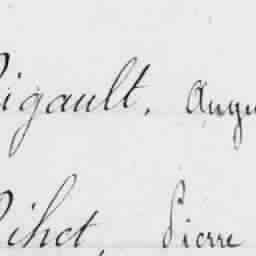 Rigault, Augu
Pihet, Pierre